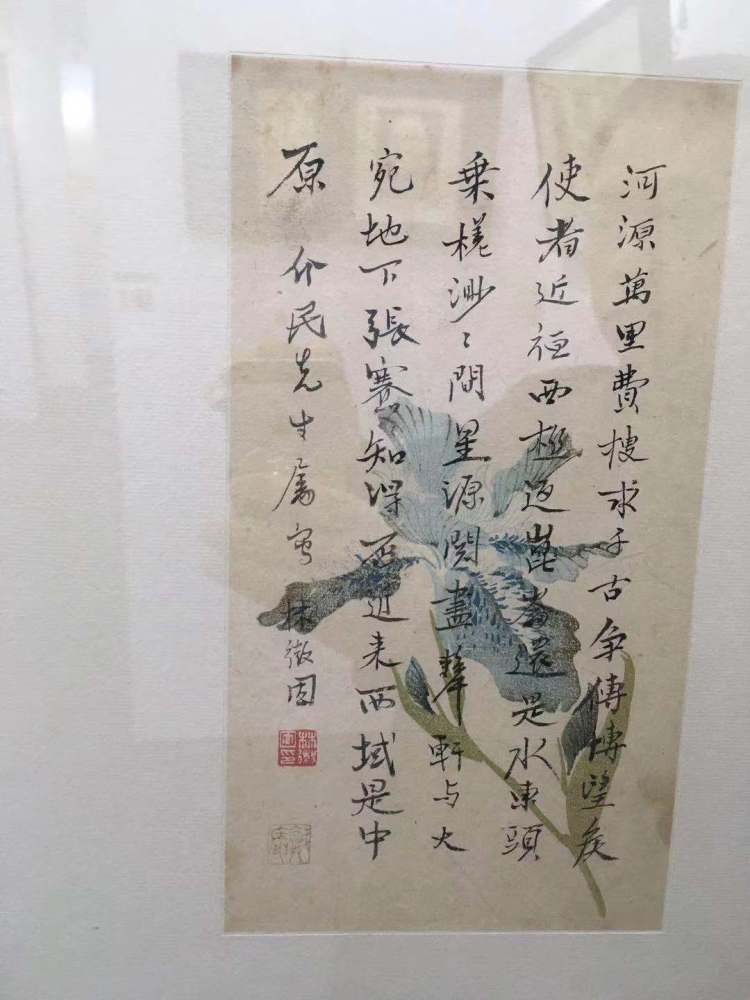 河源萬里費搜求千古爭傳博望矦
使者近從西極返崑崙還是水東頭
乗槎渺〻間星源閱盡華軒与大
宛地下張騫知得否近来西域是中
原 介民先生屬写 林徽因